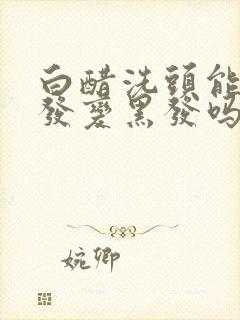 白醋洗頭能
發變黑發嗎
婉卿